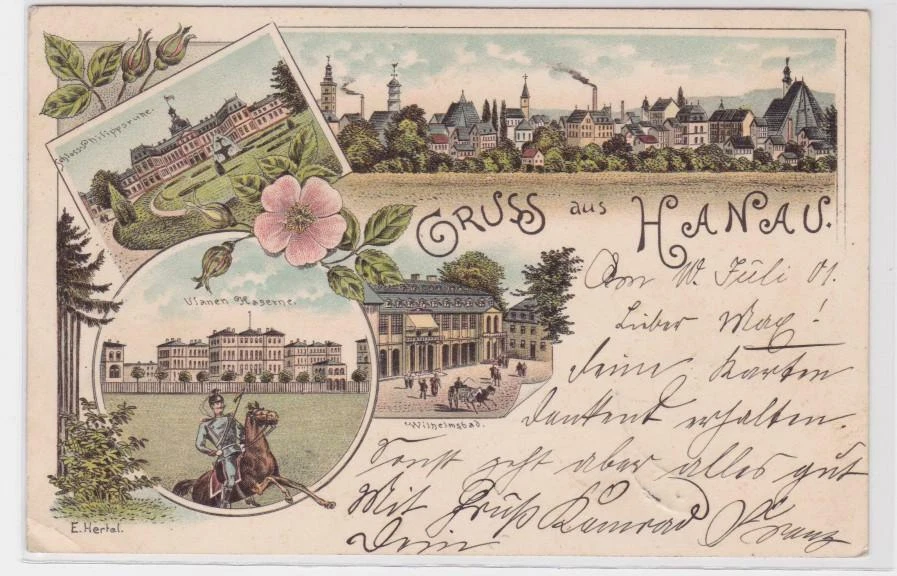 Schloss Philippsruhe.
GRUSS aus HANAU.
Ulanen Kaserne.
Wilhelmsbad.
Juli 01.
Lieber Max!
Deine Karten
dankend erhalten.
Sonst geht aber alles gut
Mit Gruß
Dein Franz
E. Hertel.